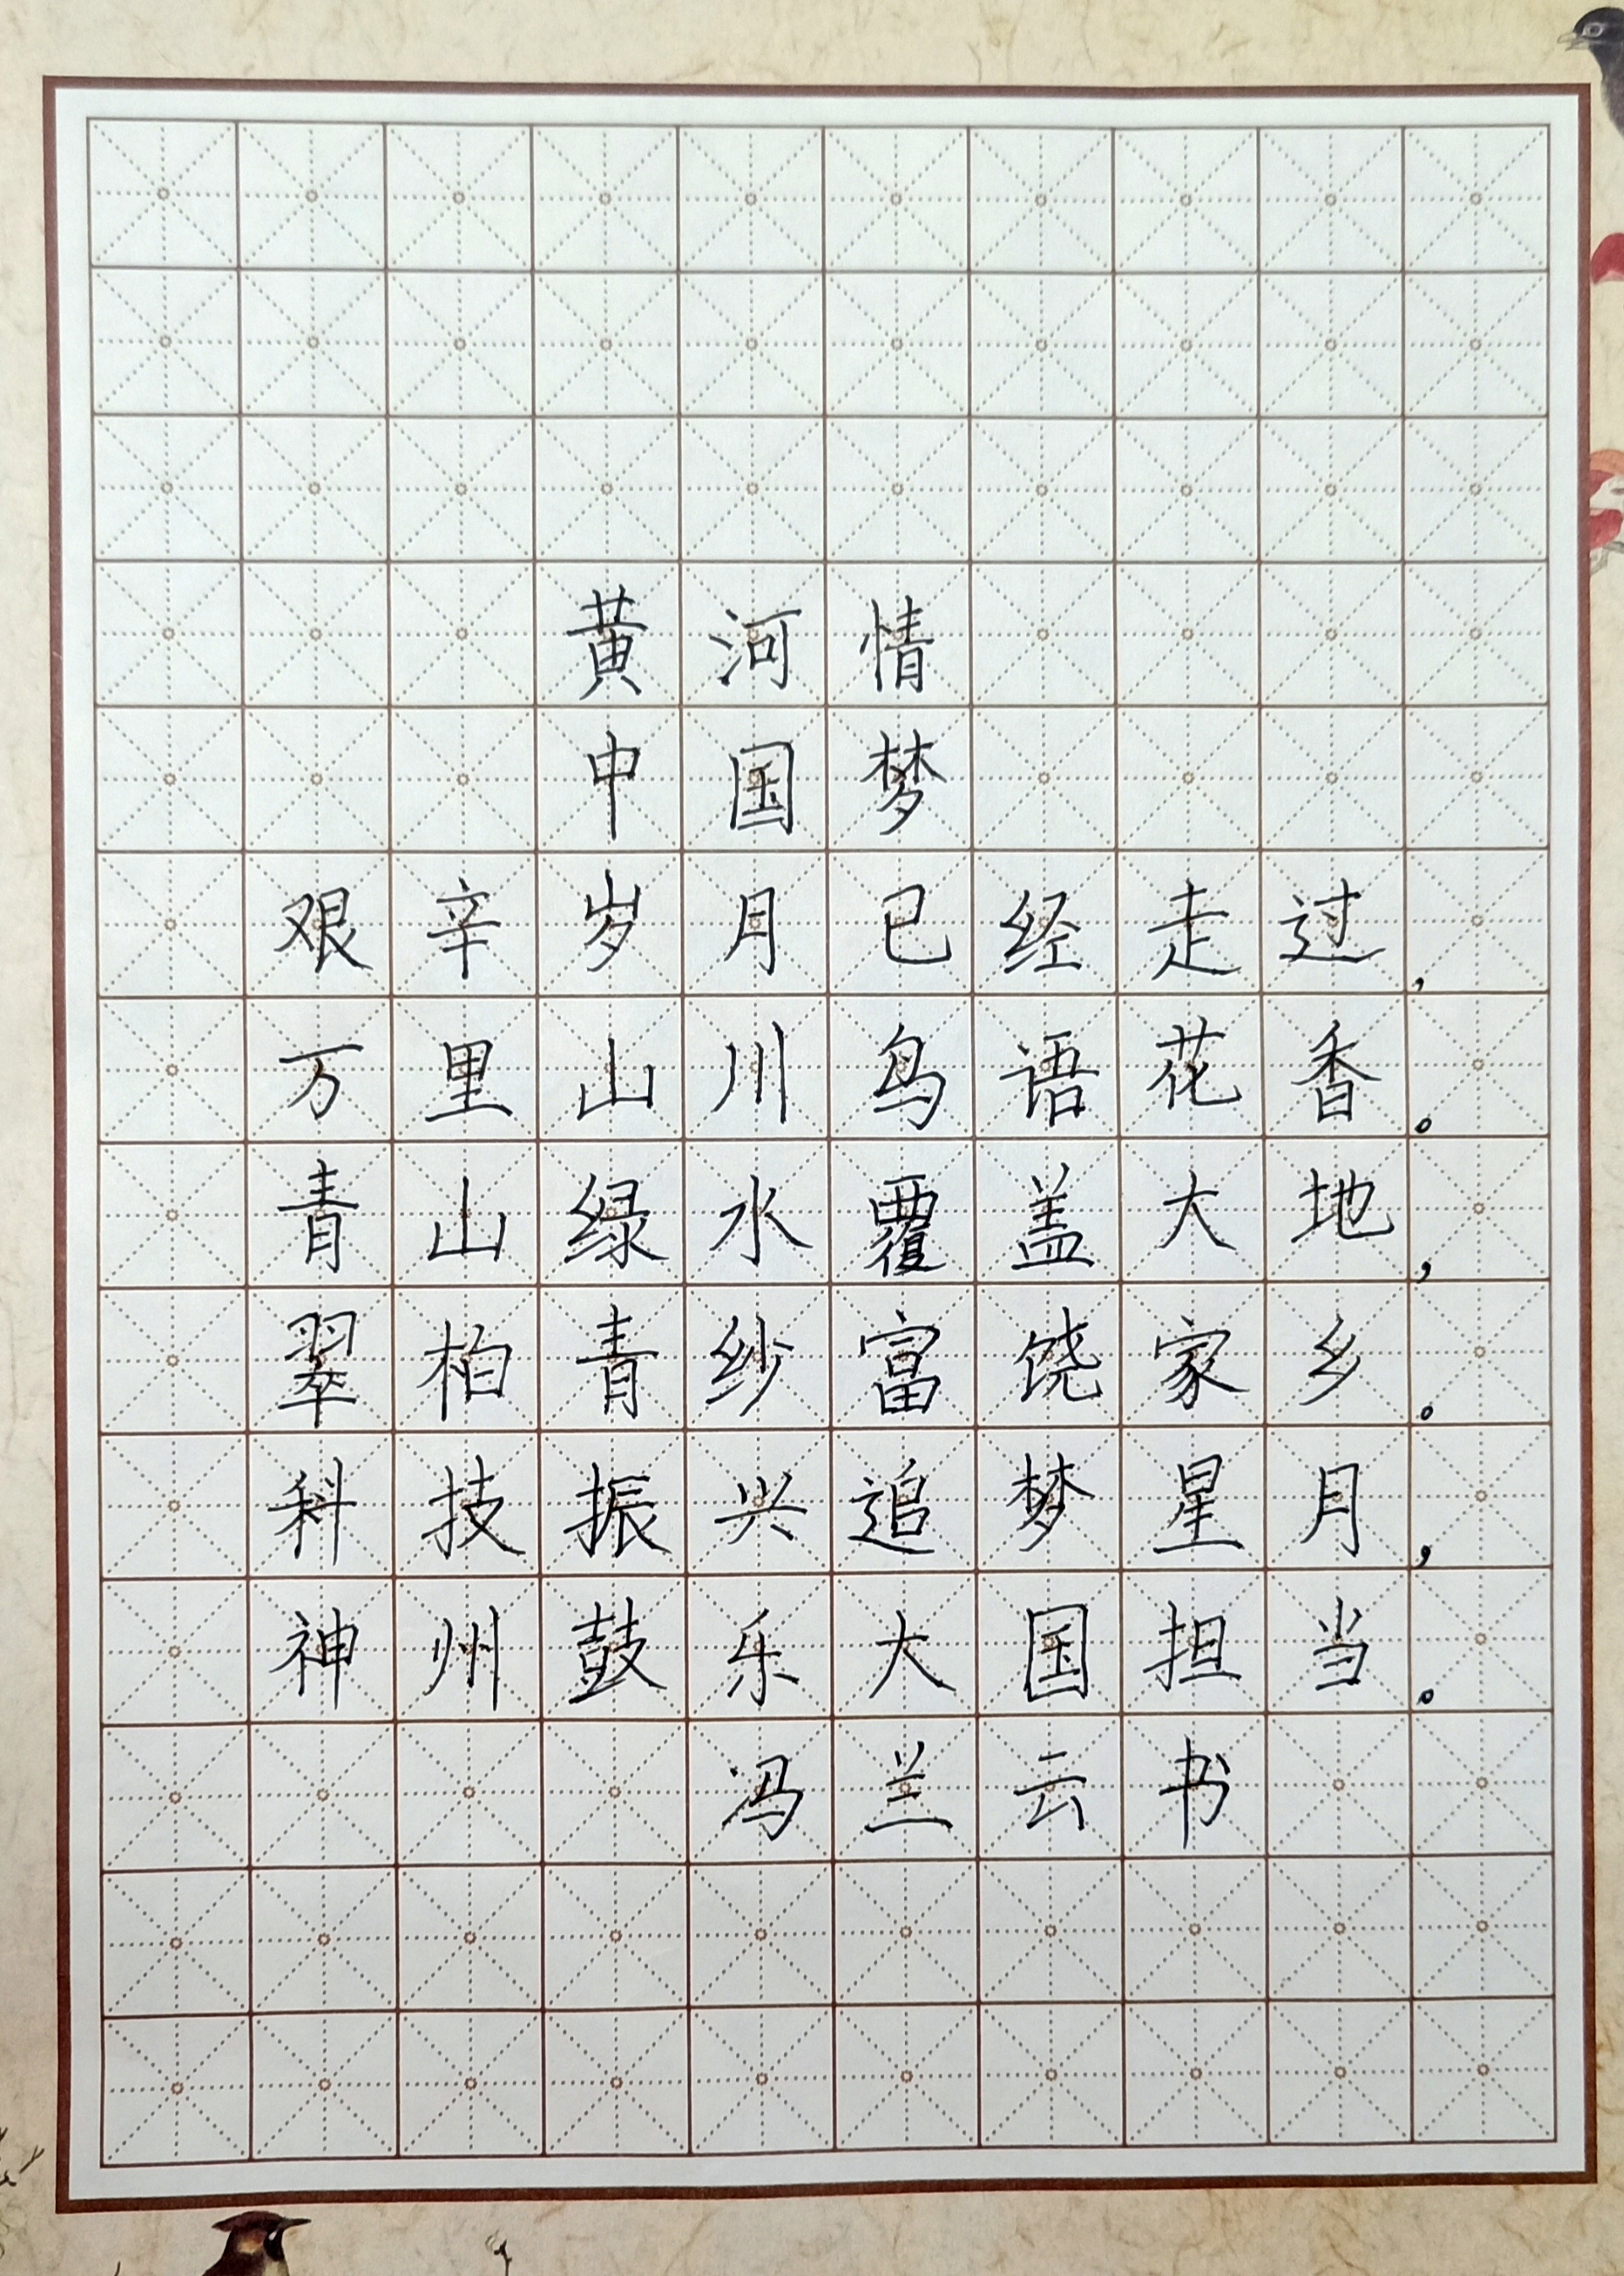 黄河情
中国梦
艰辛岁月已经走过,
万里山川鸟语花香。
青山绿水覆盖大地,
翠柏青纱富饶家乡。
科技振兴追梦星月,
神州鼓乐大国担当。
冯兰云书